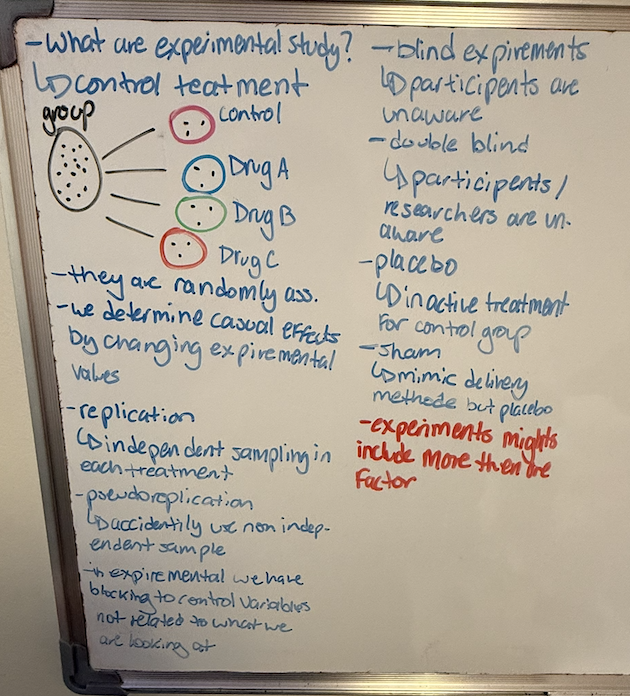 -What are experimental study?
↳control teatment
group
control
Drug A
Drug B
Drug C
-they are randomly ass.
-we determine casual effects
by changing expiremental
values
-replication
↳independent sampling in
each treatment
-pseudoreplication
↳accidentily use non indep-
endent sample
-in expiremental we have
blocking to control variables
not related to what we
are looking at
-blind expirements
↳participents are
unaware
-double blind
↳participents/
researchers are un-
aware
-placebo
↳inactive treatment
for control group
-sham
↳mimic delivery
methode but placebo
-experiments mights
include more then one
factor